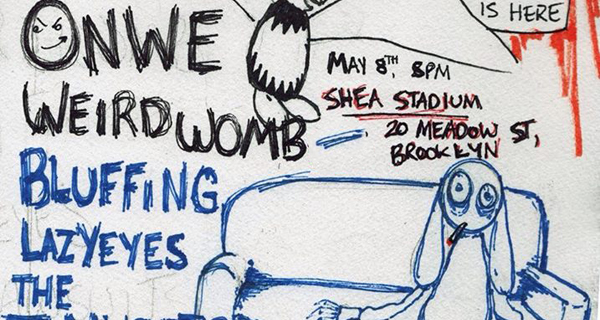 IS HERE
ONWE
WEIRD WOMB
MAY 8TH, 8PM
SHEA STADIUM
20 MEADOW ST,
BROOKLYN
BLUFFING
LAZYEYES
THE